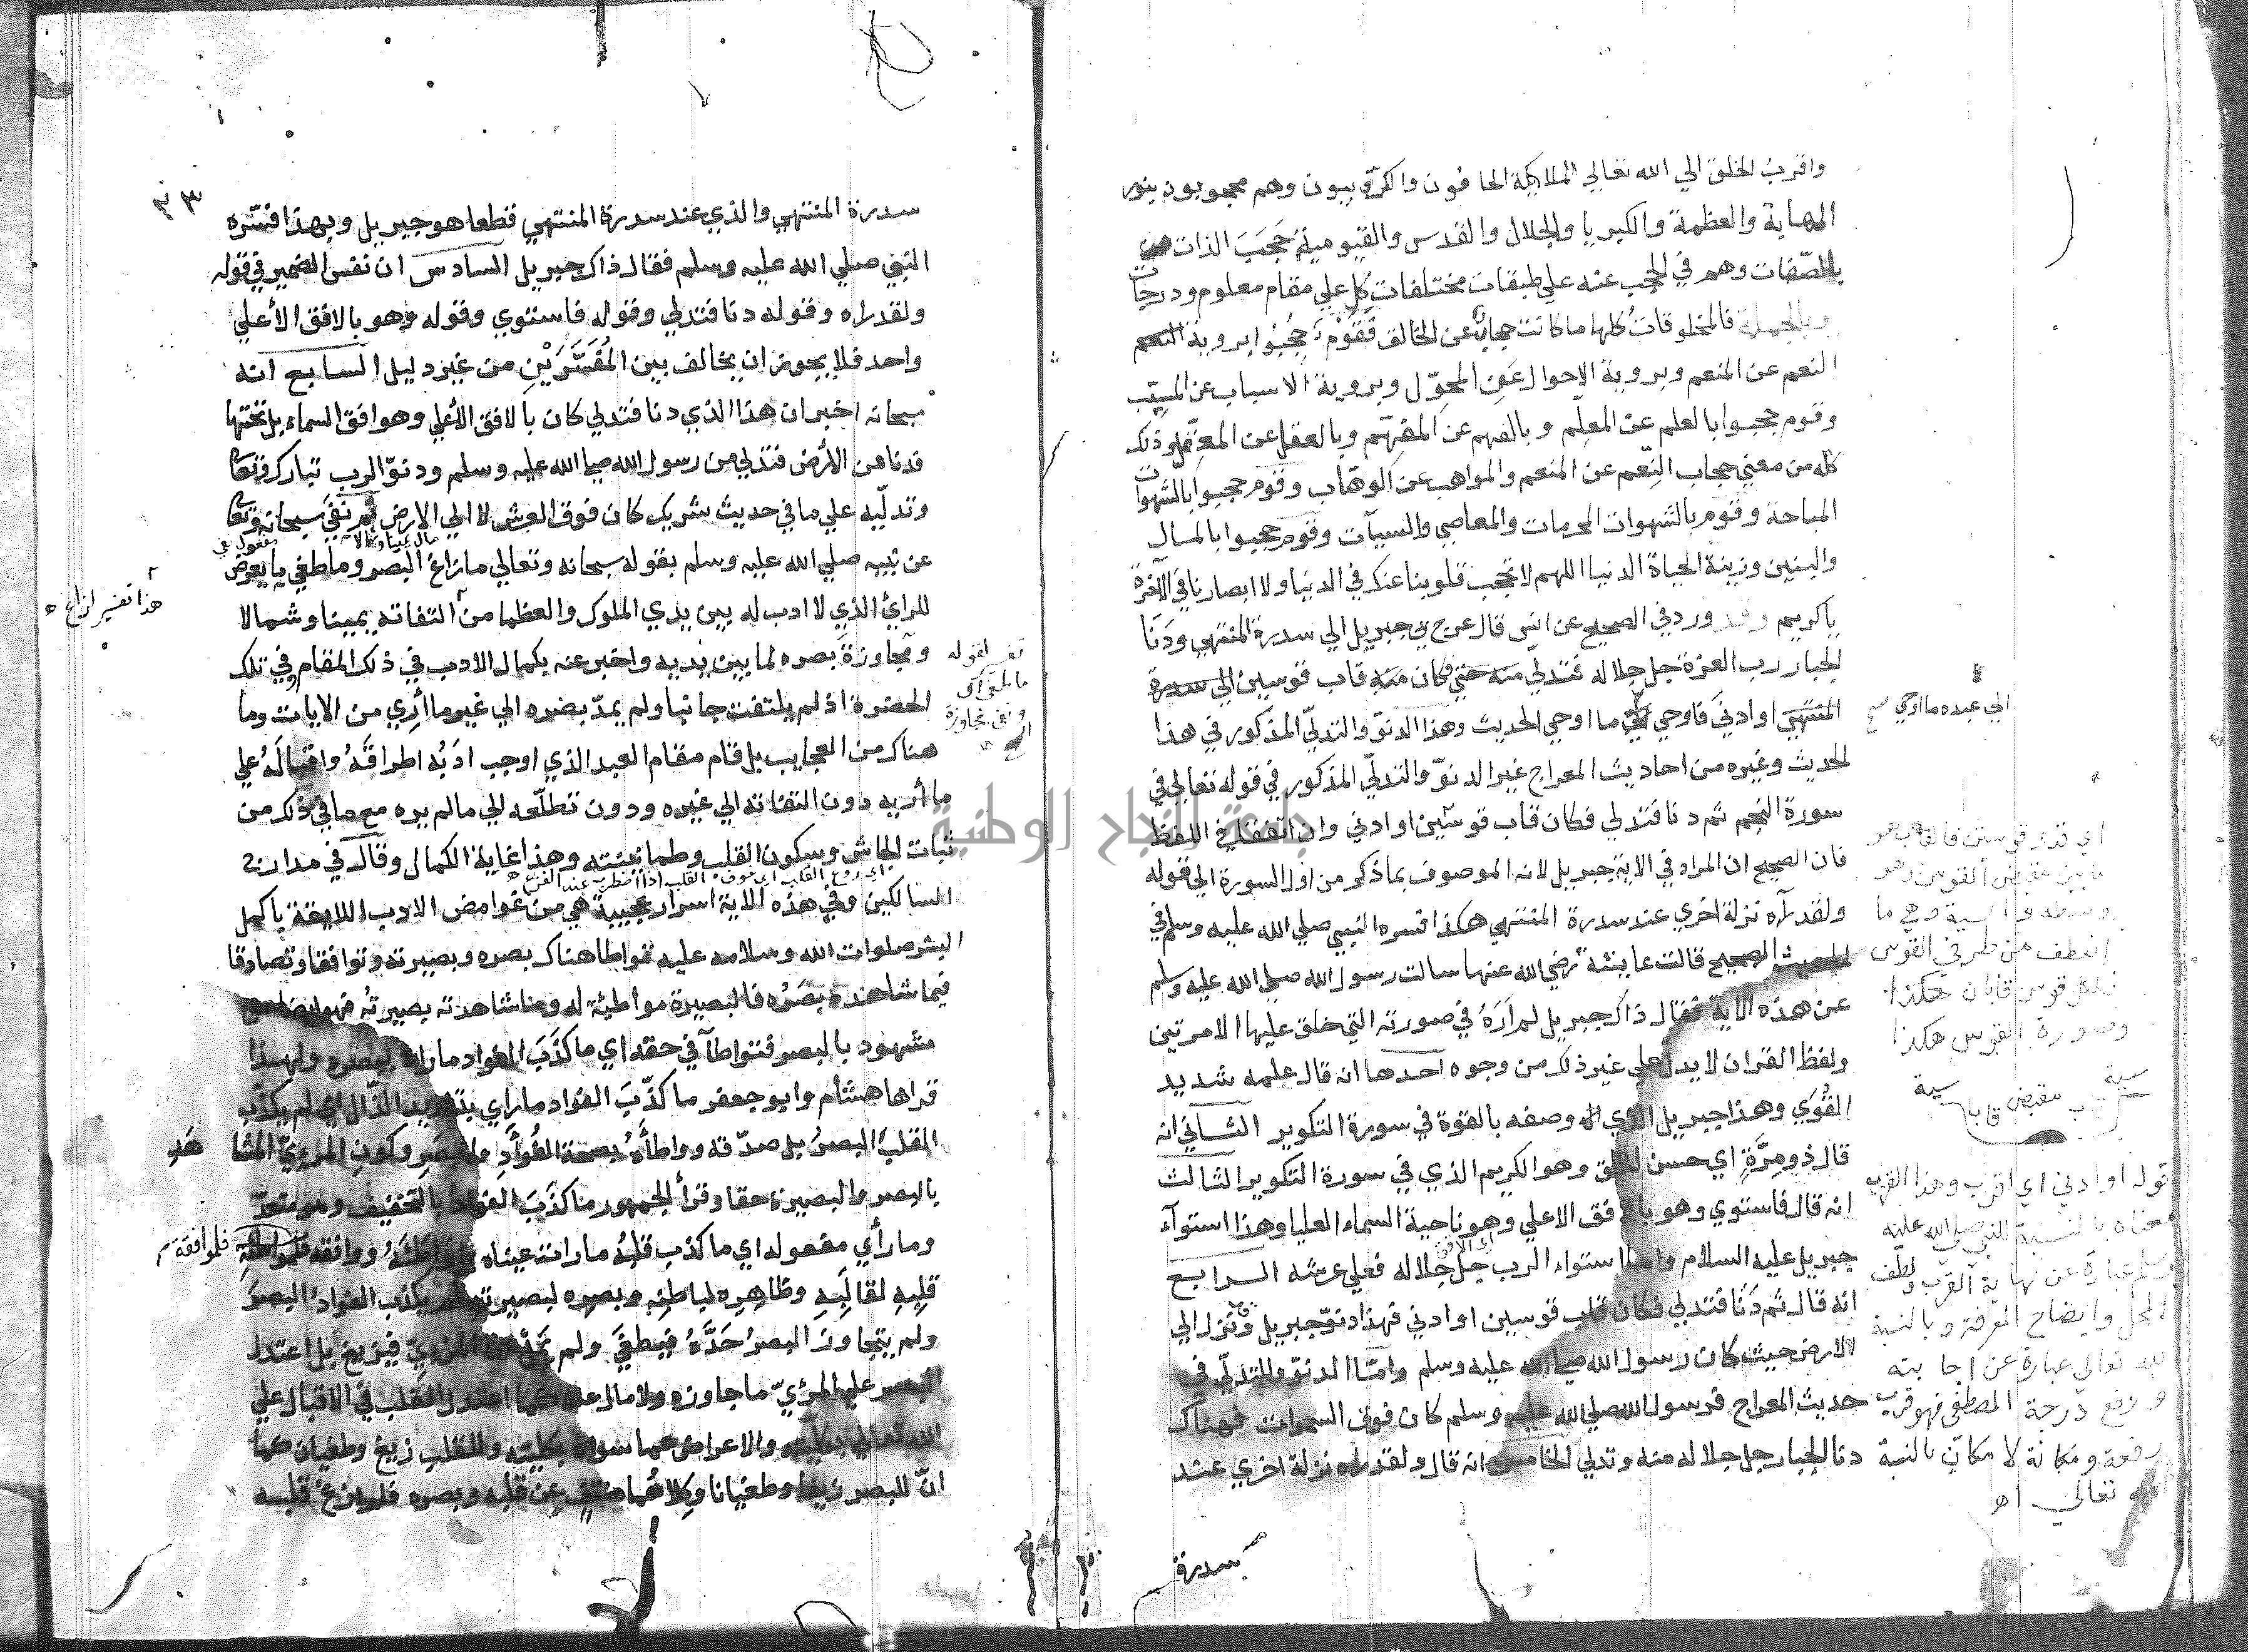 واقرب الخلق الي الله تعالي الملايكة الحافون والكروبيون وهم محجوبون بنور
المهابة والعظمة والكبريا والجلال والقدس والقيومية حجب الذات
بالصفات وهم في الحجب عنه علي طبقات مختلفات كل علي مقام معلوم ودرجات
وبالجملة فالمخلوقات كلها ما كانت حجابا عن الخالق فقوم حجبوا بروية النعم
النعم عن المنعم وبروية الاحوال عن المحول وبروية الاسباب عن المسبب
وقوم حجبوا بالعلم عن المعلم وبالفهم عن المفهم وبالعقل عن المعقل وذلك
كله من معني حجاب النعم عن المنعم والمواهب عن الوهاب وقوم حجبوا بالشهوات
المباحة وقوم بالشهوات المحرمات والمعاصي والسيآت وقوم حجبوا بالمال
والبنين وزينة الحياة الدنيا اللهم لا تحجب قلوبنا عنك في الدنيا ولا ابصارنا في الآخرة
يا كريم وقد ورد في الصحيح عن انس قال عرج بي جبريل الي سدرة المنتهي ودنا
الجبار رب العزة جل جلاله فتدلي منه حتي كان منه قاب قوسين الي سدرة
المنتهي او ادني فاوحي ما اوحي الحديث وهذا الدنو والتدلي المذكور في هذا
الي عبده ما اوحي صح
الحديث وغيره من احاديث المعراج غير الدنو والتدلي المذكور في قوله تعالي في
سورة النجم ثم دنا فتدلي فكان قاب قوسين او ادني وان اتفقا في اللفظ
فان الصحيح ان المراد في الاية جبريل لانه الموصوف بما ذكر من اول السورة الي قوله
ولقد رآه نزلة اخري عند سدرة المنتهي هكذا فسره النبي صلي الله عليه وسلم في
الحديث الصحيح قالت عايشة رضي الله عنها سالت رسول الله صلي الله عليه وسلم
عن هذه الاية فقال ذاك جبريل لم اره في صورته التي خلق عليها الا مرتين
ولفظ القران لا يدل علي غير ذلك من وجوه احدها انه قال علمه شديد
القوي وهذا جبريل الذي وصفه بالقوة في سورة التكوير الثاني انه
قال ذو مرة اي حسن الخلق وهو الكريم الذي في سورة التكوير الثالث
انه قال فاستوي وهو بالافق الاعلي وهو ناحية السماء العليا وهذا استوآء
جبريل عليه السلام واما استواء الرب جل جلاله فعلي عرشه الرابع
انه قال ثم دنا فتدلي فكان قاب قوسين او ادني فهذا دنو جبريل ونزل الي
الارض حيث كان رسول الله صلي الله عليه وسلم واما الدنو والتدلي في
حديث المعراج فرسول الله صلي الله عليه وسلم كان فوق السموات فهناك
دنا الجبار جل جلاله منه وتدلي الخامس انه قال ولقد رآه نزلة اخري عند
اي قدر قوسين
ما بين مقبض القوس وهو
انعطف من طرفي القوس
فلكل قوس قابان هكذا
وصورة القوس هكذا
سية
مقبض
سية
قاب
قوله او ادني اي اقرب وهذا القرب
معناه بالنسبة للنبي صلي الله عليه
وسلم عبارة عن نهاية القرب ولطف
المحل وايضاح المعرفة وبالنسبة
لله تعالي عبارة عن اجابته
ورفع درجة المصطفي فهو قرب
رفعة ومكانة لا مكان بالنسبة
لله تعالي اه
سدرة
٣٣
سدرة المنتهي والذي عند سدرة المنتهي قطعا هو جبريل وبهذا فسره
النبي صلي الله عليه وسلم فقال ذاك جبريل السادس ان نفس الضمير في قوله
ولقد راه وقوله دنا فتدلي وقوله فاستوي وقوله وهو بالافق الأعلي
واحد فلا يجوز ان يخالف بين المفسرين من غير دليل السابع انه
سبحانه اخبر ان هذا الذي دنا فتدلي كان بالافق الأعلي وهو افق السماء بل تحتها
فدنا من الأرض فتدلي من رسول الله صلي الله عليه وسلم ودنو الرب تبارك وتعا
وتدليه علي ما في حديث شريك كان فوق العرش لا الي الارض ثم نفي سبحانه وتعا
عن نبيه صلي الله عليه وسلم بقوله سبحانه وتعالي ما زاغ البصر وما طغي ما يعرض
هذا تفسير لزاغ
للرائ الذي لا ادب له بين يدي الملوك والعظما من التفاته يمينا وشمالا
ومجاوزة بصره لما بين يديه واخبر عنه بكمال الادب في ذلك المقام وفي تلك
تفسير لقوله
ما طغي اي
ونفي مجاوزة
الحضرة اذ لم يلتفت جانبا ولم يمد بصره الي غير ما أري من الايات وما
هناك من العجايب بل قام مقام العبد الذي اوجب ادبه اطراقه واقباله علي
ما أريه دون التفاته الي غيره ودون تطلعه الي ما لم يره مع ما في ذلك من
ثبات الجاش وسكون القلب وطمانينته وهذا غاية الكمال وقال في مدارج
السالكين وفي هذه الاية اسرار عجيبة هي من غوامض الادب اللايقة باكمل
البشر صلوات الله وسلامه عليه تواطا هناك بصره وبصيرته وتوافقا وتصادقا
فيما شاهده بصره فالبصيرة مواطئة له وما شاهدته بصيرته فهو ايضا حق
مشهود بالبصر فتواطآ في حقه اي ما كذب الفؤاد ما راه ببصره ولهذا
قراها هشام وابو جعفر ما كذب الفواد ما راي بتشديد الذال اي لم يكذب
القلب البصر بل صدقه وواطأه بصحة الفؤاد والبصر وكون المرءي المشا هد
بالبصر والبصيرة حقا وقرأ الجمهور ما كذب الفؤاد بالتخفيف وهو متعد
وما رأي مفعوله اي ما كذب قلبه ما رات عيناه بل واطأه ووافقه فلمواطأة
فلموافقة
قلبه لقالبه وظاهره لباطنه وبصره لبصيرته لم يكذب الفواد البصر
ولم يتجاوز البصر حده فيطغي ولم يمل عن المرءي فيزيغ بل اعتدل
البصر علي المرئي ما جاوزه ولا مال عنه كما اعتدل القلب في الاقبال علي
الله تعالي بكليته والاعراض عما سواه بكليته وللقلب زيغ وطغيان كما
ان للبصر زيغا وطغيانا وكلاهما منتف عن قلبه وبصره فلم يزغ قلبه
جامعة النجاح الوطنية